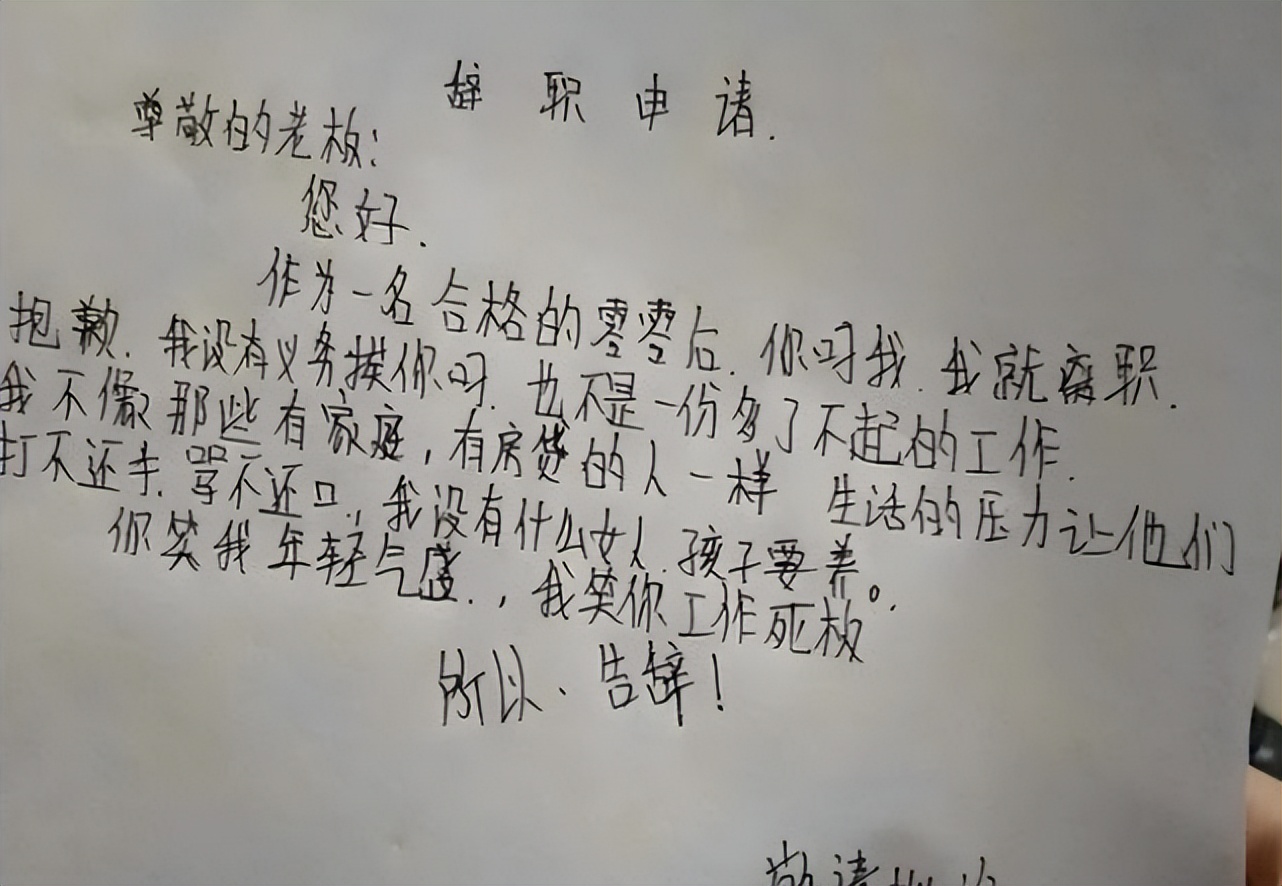 辞职申请.
尊敬的老板:
您好.
作为一名合格的零零后.你叼我.我就离职.
抱歉.我没有义务你叼.也不是一份多了不起的工作.
我不像那些有家庭,有房贷的人一样 生活的压力让他们
打不还手.骂不还口,我没有什么女人.孩子要养。
你笑我年轻气盛.,我笑你工作死板
所以、告辞!
敬请